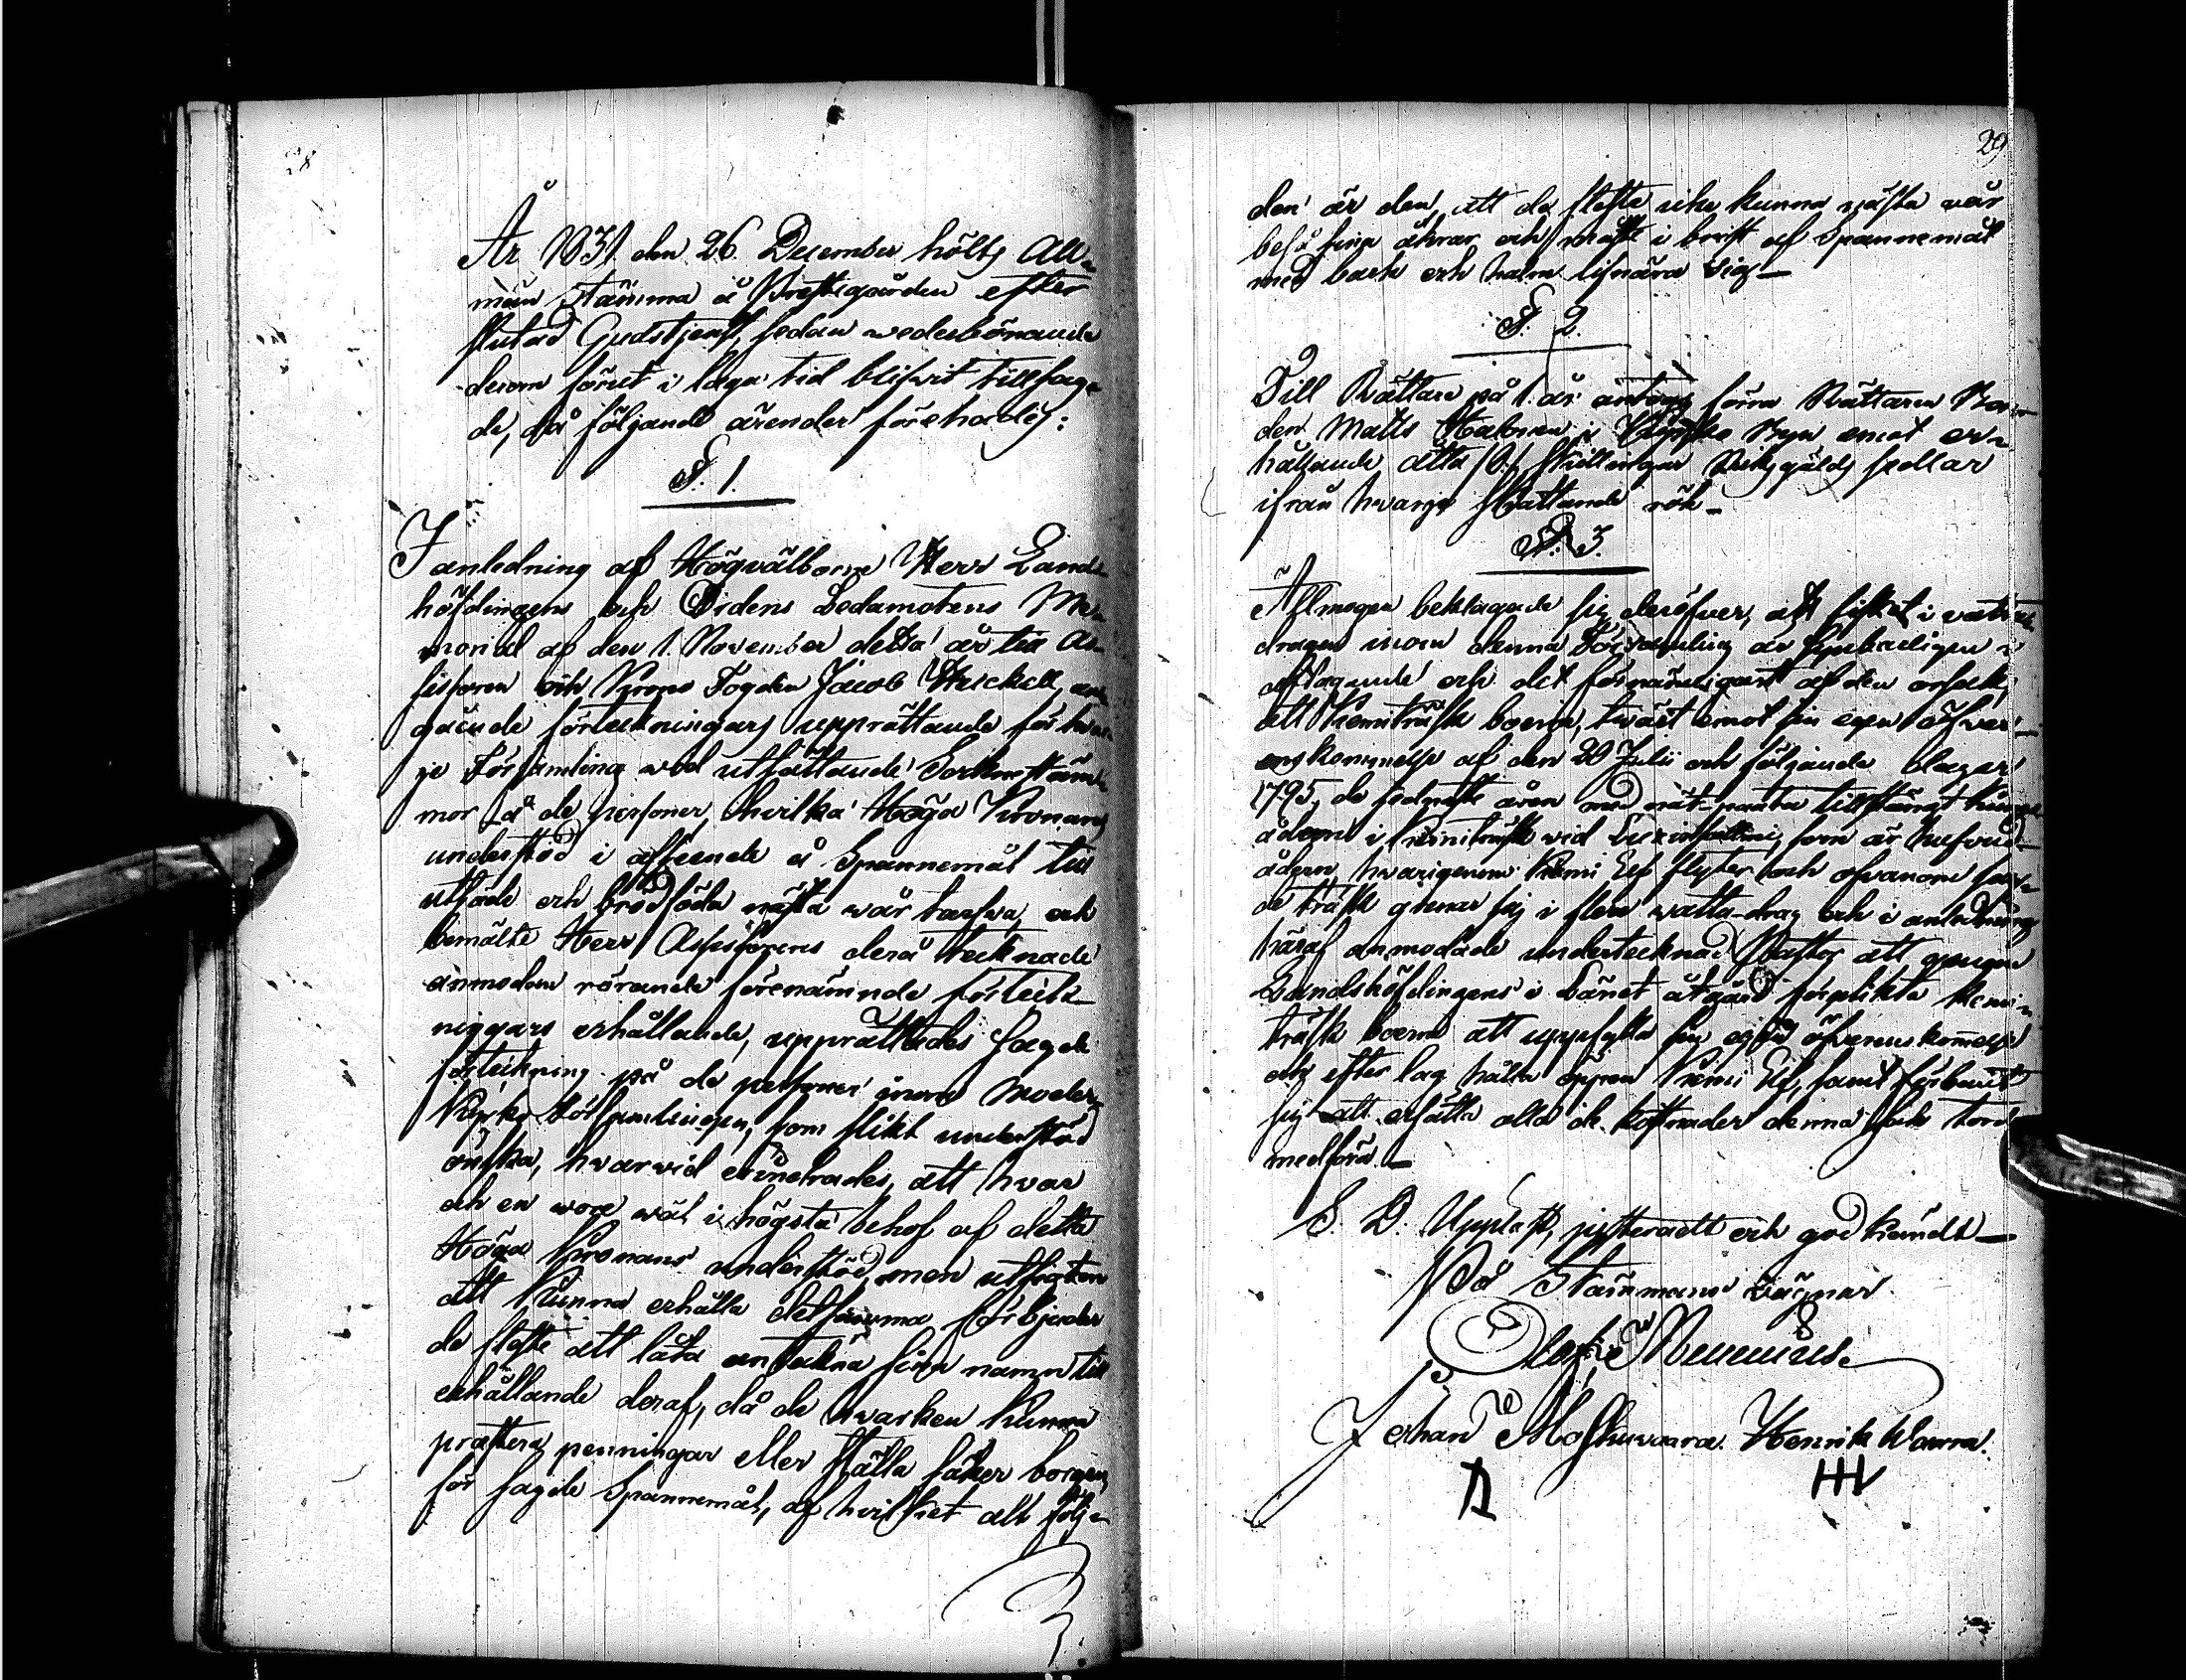 28
År 1831 den 26 December hölts All-
män Stämma å Prestegården efter
slutad Gudstjenst, sedan wederbörande
derom förut i laga tid blifvit tillsag-
de, då följande ärender förehades:
§. 1.
I anledning af Högvälborne Herr Lands-
höfdingens och Ordens Ledamotens Me-
morial af den 1. November detta år till As-
sessoren och Krono Fogden Jacob Heickell, an-
gående förteckningars upprättande för hvar-
je Församling wid utsättande Sockenstäm-
mor på de personer, hvilka Höga Kronans
understöd i afseende å Spannemål till
utsäde och brödföda nästa wår tarfva, och
bemälte Herr Assessorens derå tecknade
anmodan rörande förenämnde förteck-
niggars erhållande, upprättades sagde
förteckning på de personer inom Moder-
Kyrko Församlingen, som slikt understöd
önska, hvarvid erindrades, att hvar
och en wore wäl i högsta behof af detta
Höga Kronans understöd, men utsigten
att kunna erhålla detsamma förbjuder
de fleste att låta anteckna sina namn till
erhållande deraf, då de hvarken kunna
præstera penningar eller ställa säker borgen
för sagde Spannemål, af hvilket allt följ-
29
den är den, att de fleste icke kunna nästa vår
beså sina åkrar och måste i brist af Spannemål
med bark och halm lifnära sig_
§. 2.
Till Rättare på 1. år antogs förra Rättaren Bon-
den Matts Halonen i Kyrko Byn emot er-
hållande åtta /8./ Skillingar Riksgälds sedlar
ifrån hvarje skattande rök_
§. 3.
Allmogen beklagade sig deröfver, att fisket i vatten-
dragen inom denna Församling är synbarligen i
aftagande och det förnämligast af den orsak,
att Kemiträsk boerne, tvärt emot sin egen öfver-
enskommelse af den 20 Julii och följande dagar
1795, de sednaste åren med nät-patar tillstängt Kungs
ådern i Kemiträsk vid som är hufvud-
ådern, hvarigenom Kemi Elf flyter och ofvanom
de träsk grenar sig i flere watten-drag och i anledning
häraf anmodade undertecknad Pastor att genom
Landshöfdingens i Länet åtgärd förplikta Kemi-
träsk boerne att uppfylla sin egen öfverenskommelse
och efter lag hålla öppen Kemi Elf, samt förbandt
sig att ersätta alla de kostnader denna sak torde
medföra_
S. D. Uppläst, justeradt och godkändt_
På Stämmans vägnar
Johan Moskuvaara. Henrik Warra.
HW